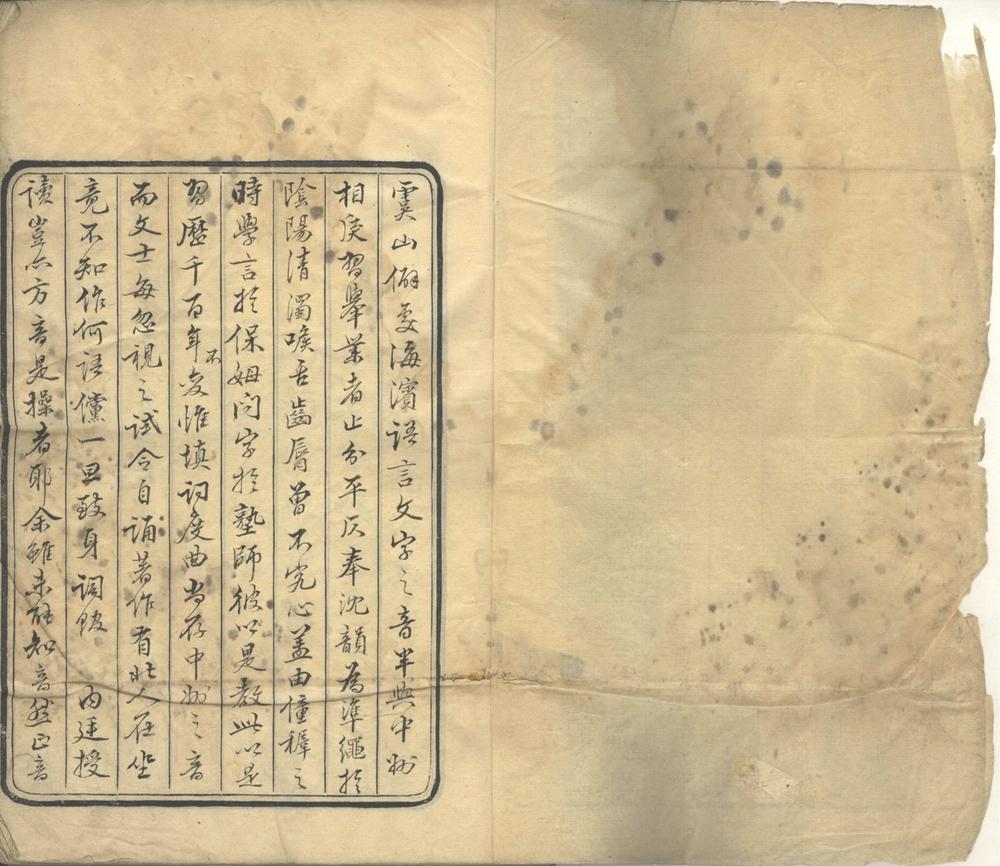 虞山僻處海濱語言文字之音半與中州
相戾習舉業者止分平仄奉沈韻為準繩於
陰陽清濁喉舌齒脣曾不究心蓋由僮稺之
時學言於保姆問字於塾師彼以是教此以是
習歷千百年不变惟填词度曲尚存中州之音
而文士每忽視之試令自誦著作有北人在坐
竟不知作何语儻一旦致身调皷 內廷授
读豈亦方音是操者耶余雖未能知音然正音